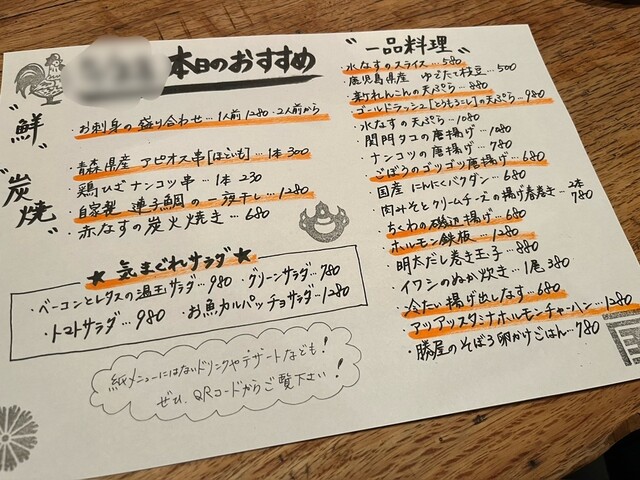 本日のおすすめ
"鮮"
・お刺身の盛り合わせ…1人前1280-2人前から
"炭焼"
・青森県産 アピオス串[ほどいも]…1本300
・鶏ひざナンコツ串…1本230
・自家製 連子鯛の一夜干し…1280
・赤なすの炭火焼き…680
★気まぐれサラダ★
・ベーコンとレタスの温玉サラダ…980 ・グリーンサラダ…780
・トマトサラダ…980 ・お魚カルパッチョサラダ…1280
紙メニューにはないドリンクやデザートなども!
ぜひ、QRコードからご覧下さい!
"一品料理"
・水なすのスライス…580
・鹿児島県産 ゆでたて枝豆…500
・新れんこんの天ぷら…880
・ゴールドラッシュ[とうもろこし]の天ぷら…980
・水なすの天ぷら…1080
・関門タコの唐揚げ…1080
・ナンコツの唐揚げ…780
・ごぼうのゴツゴツ唐揚げ…680
・国産 にんにくバクダン…680
・肉みそとクリームチーズの揚げ春巻き…2本780
・ちくわの磯辺揚げ…680
・ホルモン鉄板…1280
・明太だし巻き玉子…880
・イワシのぬか炊き…1尾380
・冷たい揚げ出しなす…680
・アツアツスタミナホルモンチャーハン…1280
・勝屋のそぼろ卵かけごはん…780